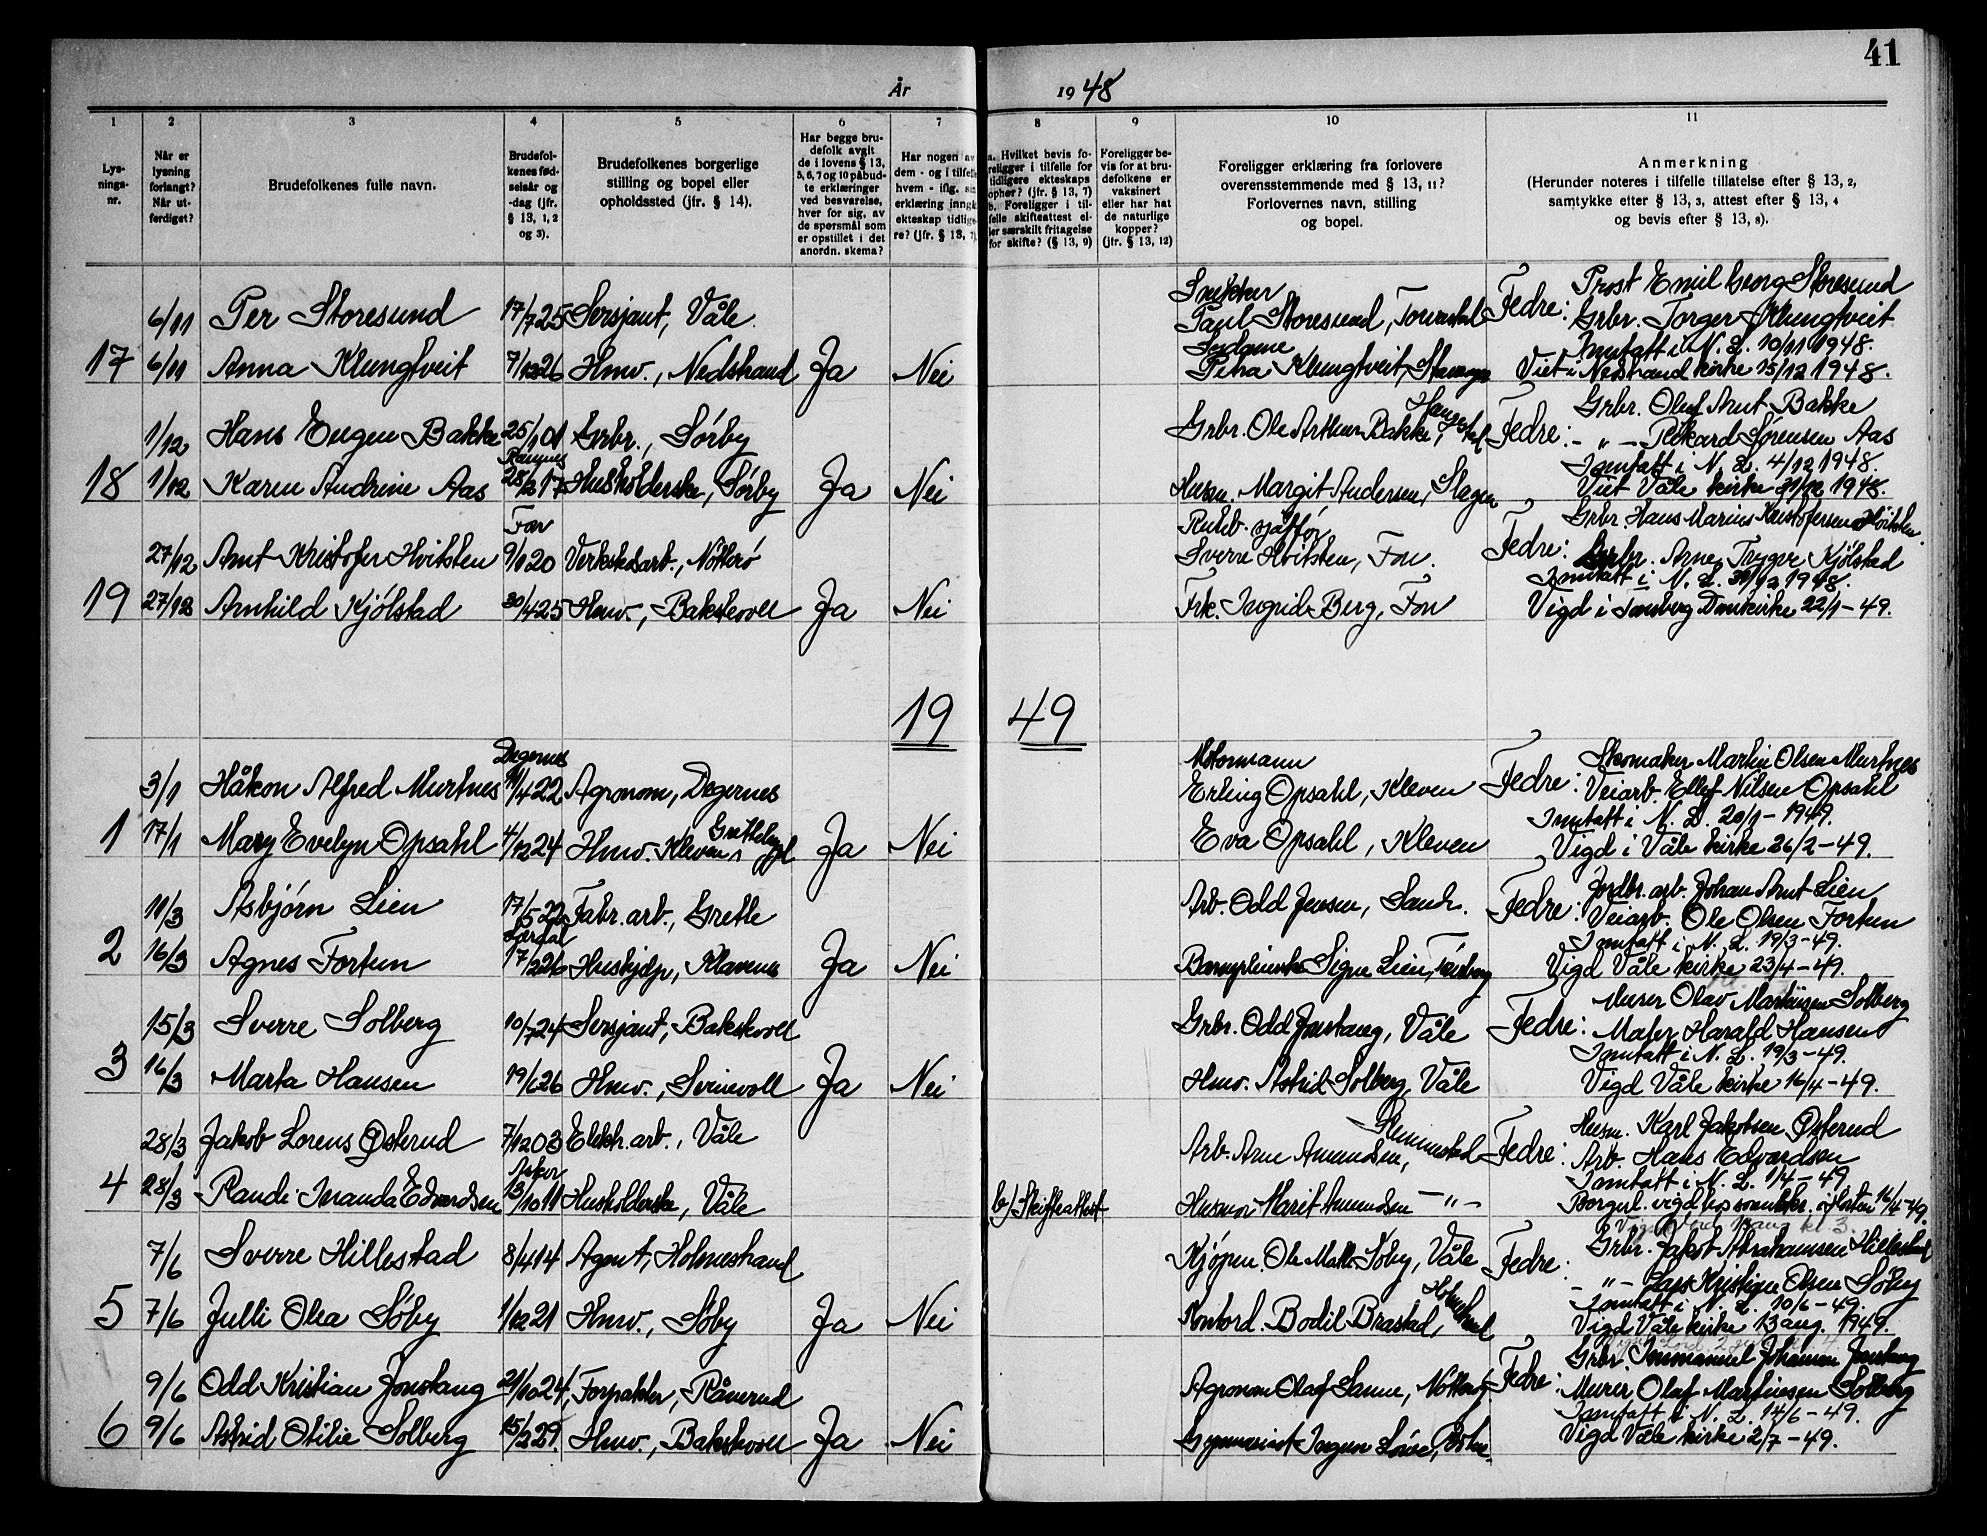 41
År 1948
1 2 3 4 5 6 7 8 9 10 11
Lys-
nings-
nr.
Når er
lysning
forlangt?
Når ut-
ferdiget?
Brudefolkenes fulle navn.
Brudefol-
kenes fød-
selsår og
-dag (jfr.
§ 13, 1, 2
og 3).
Brudefolkenes borgerlige
stilling og bopel eller
opholdssted (jfr. § 14).
Har begge bru-
defolk avgit
de i lovens § 13,
5, 6, 7 og 10 påbud-
te erklæringer
ved besvarelse,
hver for sig, av
de spørsmål som
er opstillet i det
anordn. skema?
Har nogen av
dem - og i tilfelle
hvem - iflg. sin
erklæring inngå
ekteskap tidlige-
re? (jfr. § 13, 7)
a. Hvilket bevis fo-
religger i tilfelle for
tidligere ekteskaps
opher? (jfr. § 13, 7)
b. Foreligger i til-
felle skifteattest el-
ler særskilt fritagelse
for skifte? (§ 13, 9)
Foreligger be-
vis for at bru-
defolkene er
vaksinert
eller har hat
de naturlige
kopper?
(jfr. § 13, 12)
Foreligger erklæring fra forlovere
overensstemmende med § 13, 11?
Forlovernes navn, stilling
og bopel.
Anmerkning
(Herunder noteres i tilfelle tillatelse efter § 13, 2,
samtykke efter § 13, 3, attest efter § 13, 4
og bevis efter § 13, 8).
6/11 Per Storesund 17/7 25 Sersjant, Våle.
Snekker
Paul Storesund, Torvastad
Fedre: Prost Emil Georg Storesund
Grbr. Torger Klungtveit
17 6/11 Anna Klungtveit 7/12 26 Hmv., Nedstrand Ja Nei
Petra Klungtveit, Stavanger
Inntatt i N. L. 10/11 1948.
Viet i Nedstrand kirke 15/12 1948.
1/12 Hans Eugen Bakke 25/1 01 Grbr., Sørby
Grbr. Ole Arthur Bakke,
Fedre: Grbr. Oluf Arnt Bakke
- " - Rikard Sørensen Aas
Ramnes
18 1/12 Karen Andrine Aas 28/2 17 Husholderske, Sørby Ja Nei
Husm. Margit Andersen, Slagen
Inntatt i N. L. 4/12 1948.
Viet Våle kirke 31/12 1948.
Fon
27/12 Arnt Kristofer Hvitsten 9/1 20 Verkstedsarb., Nøtterö
Ruteb. sjåför
Sverre Hvitsten, Fon.
Fedre: Grbr. Hans Marius Kristofersen Hvitsten
Grbr. Arne Trygve Kjølstad
19 27/12 Arnhild Kjølstad 30/4 25 Hmv., Bakskovll Ja Nei
Frk. Ingrid Berg, Fon
Inntatt i N. L. 31/12 1948.
Vigd i Tønsberg Domkirke 22/1-49.
19 49
Degernes
3/1 Håkon Alfred Murtnes 11/4 22 Agronom, Degernes
Motormann
Erling Opsahl, Kleven
Fedre: Skomaker Martin Olsen Murtnes
Veiarb. Ellef Nilsen Opsahl
1 17/1 Mary Evelyn Opsahl 4/12 24 Hmv. Kleven, Ja Nei
Eva Opsahl, Kleven
Inntatt i N. L. 20/1-1949.
Vigd i Våle kirke 26/2-49.
11/3 Asbjørn Lien 17/5 22 Fabr. arb., Gretle
Arb. Odd Jensen, Sand.
Fedre: Jordbr. arb. Johan Arnt Lien
Veiarb. Ole Olsen Fortun
Lærdal
2 16/3 Agnes Fortun 17/2 26 Hushjelp, Klavenes Ja Nei
Signe Lien, Tönsberg
Inntatt i N. L. 19/3-49.
Vigd Våle kirke 23/4-49.
15/3 Sverre Solberg 10/7 24 Sersjant, Bakskovll
Grbr. Odd Jonstang, Våle
Fedre: Murer Olav Martinsen Solberg
Maler Harald Hansen
3 16/3 Marta Hansen 19/6 26 Hmv., Svinevoll Ja Nei
Hmv. Astrid Solberg, Våle
Inntatt i N. L. 19/3-49.
Vigd Våle kirke 16/4-49.
28/3 Jakob Lorens Østerud 7/12 03 Elektr. arb., Våle
Arb. Arne Amundsen,
Fedre: Husm. Karl Jakobsen Østerud
Arb. Hans Edvardsen
Asker
4 28/3 Randi Iranda Edvardsen 13/10 11 Husholderske, Våle
b) Skifteattest
Husmor Marit Amundsen - " -
Inntatt i N. L. 1/4-49
Borgerl. vigd hos sorenskr. i Horten 16/4-49.
7/6 Sverre Hillestad 8/4 14 Agent, Holmestrand
Kjøpm. Ole Matt. Søby, Våle
Fedre: Grbr. Jakob Abrahamsen Hillestad
- " - Lars Kristian Olsen Søby
5 7/6 Julli Olea Søby 1/12 21 Hmv., Søby Ja Nei
Kontord. Bodil Brastad, Holmestrand
Inntatt i N. L. 10/6-49.
Vigd Våle kirke 13 aug. 1949.
9/6 Odd Kristian Jonstang 21/10 24, Forpakter, Råverud
Agronom Olaf Sanne, Nøtterøy.
Fedre: Grbr. Immanuel Johansen Jonstang
Murer Olaf Martinsen Solberg
6 9/6 Astrid Otilie Solberg 15/2 29 Hmv., Bakskovll Ja Nei
Inntatt i N. L. 14/6-49.
Vigd Våle kirke 2/7-49.